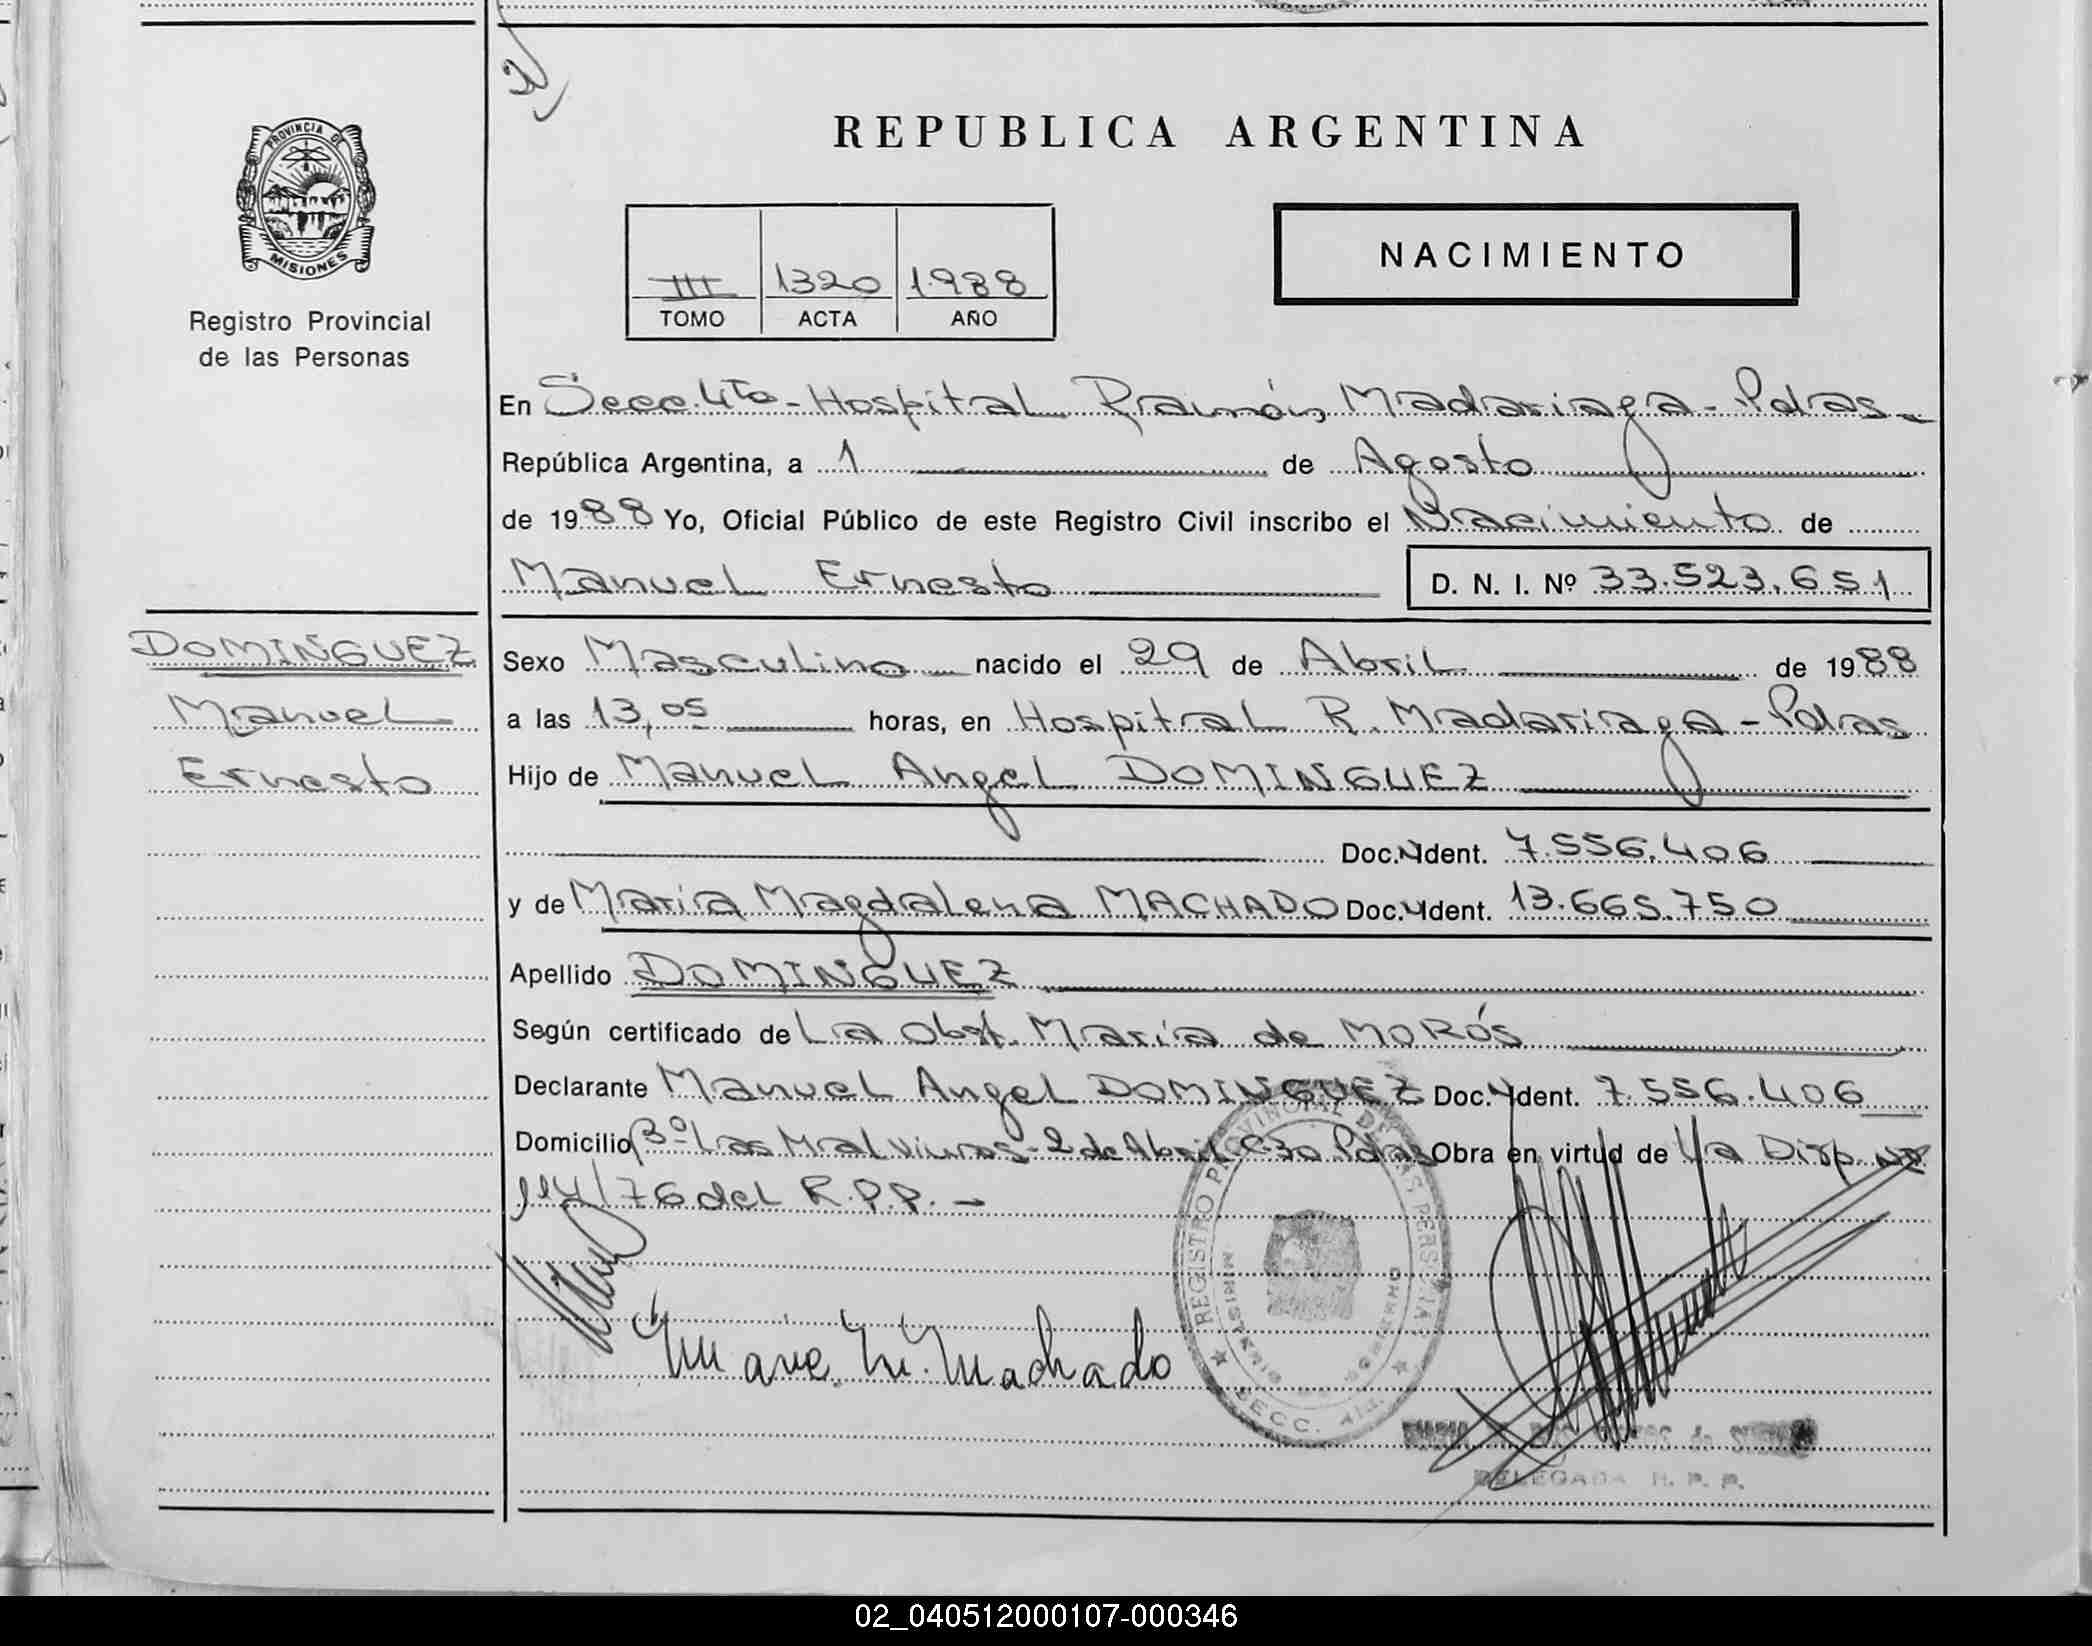 REPUBLICA ARGENTINA
PROVINCIA DE
MISIONES
Registro Provincial
de las Personas
III 1320 1988
TOMO ACTA AÑO
NACIMIENTO
En Secc. 4ta - Hospital Ramón Madariaga - Pdas -
República Argentina, a 1 de Agosto
de 1988 Yo, Oficial Público de este Registro Civil inscribo el Nacimiento de
Manuel Ernesto D. N. I. Nº 33.523.651
DOMINGUEZ
Manuel
Ernesto
Sexo Masculino nacido el 29 de Abril de 1988
a las 13,05 horas, en Hospital R. Madariaga - Pdas
Hijo de Manuel Angel DOMINGUEZ
Doc. Ident. 7.556.406
y de María Magdalena MACHADO Doc. Ident. 13.665.750
Apellido DOMINGUEZ
Según certificado de La Obst. María de MORÓS
Declarante Manuel Angel DOMINGUEZ Doc. Ident. 7.556.406
Domicilio Bº Las Malvinas - 2 de Abril C-30 Pdas Obra en virtud de la Disp. Nº
114/76 del R.P.P. -
REGISTRO PROVINCIAL DE LAS PERSONAS
MINISTERIO DE GOBIERNO
SECC. 4ta.
Marie. M. Machado
DELEGADA R. P. P.
02_040512000107-000346